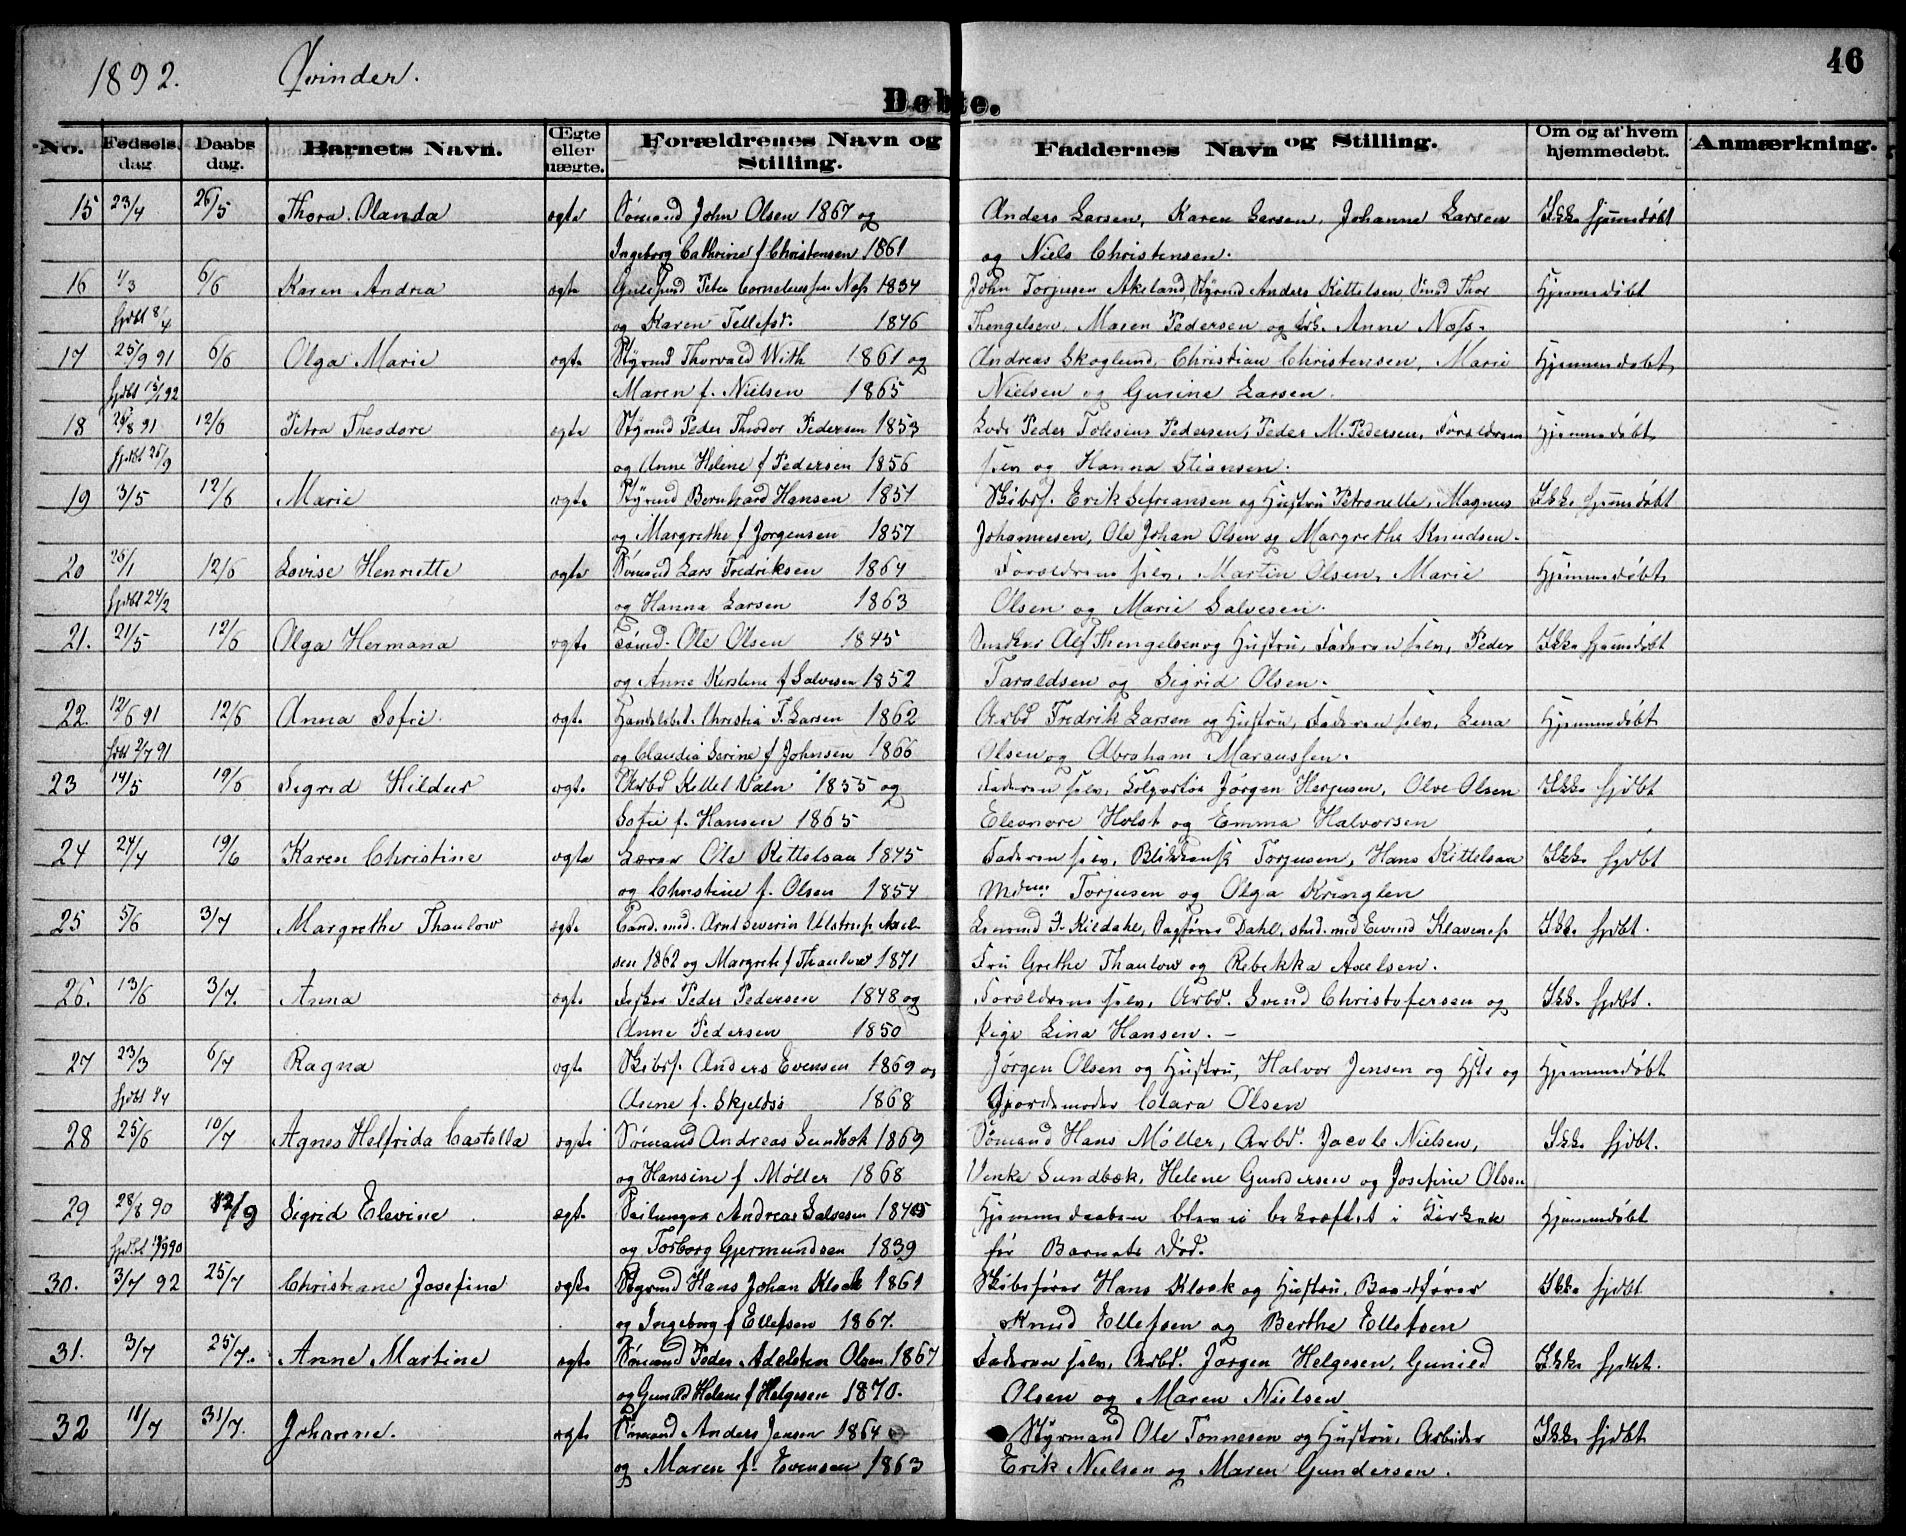 1892. Qvinder.
46
Døbte.
No. Fødsels dag. Daabs dag. Barnets Navn. Ægte eller uægte. Forældrenes Navn og Stilling. Faddernes Navn og Stilling. Om og af hvem hjemmedøbt. Anmærkning.
15 23/4 26/5 Thora Olanda ægte Sømand John Olsen 1867 og Anders Larsen, Karen Larsen, Johanne Larsen Ikke hjemmedøbt
Ingeborg Cathrine f Christensen 1861 og Niels Christensen.
16 1/3 6/6 Karen Andrea ægte Peter Corneliussen Næss 1834 John Torjusen Akeland, Styrmd Anders Kittelsen, Sømd Thor Hjemmedøbt
hjdbt 8/4 og Karen Tellefsd. 1846 Thengelsen, Maren Pedersen og Anne Næss.
17 25/9 91 6/6 Olga Marie ægte Styrmd Thorvald With 1861 og Andreas Skoglund, Christian Christensen, Marie Hjemmedøbt
hjdbt 15/1 92 Maren f. Nielsen 1865 Nielsen og Gurine Larsen.
18 26/8 91 12/6 Petra Theodore ægte Styrmd Peder Theodor Pedersen 1853 Lods Peder Tobesius Pedersen, Peder M. Pedersen, Forældrene Hjemmedøbt
hjdbt 25/9 og Anne Helene f Pedersen 1856 selv og Hanna Stiansen.
19 3/5 12/6 Marie ægte Styrmd Bernhard Hansen 1851 Skibsf. Erik Sefreansen og Hustru Petronelle, Magnus Ikke hjemmedøbt
og Margrethe f Jørgensen 1857 Johannesen, Ole Johan Olsen og Margrethe Knudsen.
20 25/1 12/6 Lovise Henriette ægte Sømand Lars Fredriksen 1864 Forældrene selv, Martin Olsen, Marie Hjemmedøbt
hjdbt 24/2 og Hanna Larsen 1863 Olsen og Marie Salvesen.
21. 21/5 12/6 Olga Hermana ægte Sømd. Ole Olsen 1845 Snedker Alf Thengelsen og Hustru, Faderen selv, Peder Ikke hjemmedøbt
og Anne Kirstine f Salvesen 1852 Taraldsen og Sigrid Olsen.
22. 12/6 91 12/6 Anna Sofie ægte Handelsbet. Christia F. Larsen 1862 Arbd Fredrik Larsen og Hustru, Faderen selv, Lena Hjemmedøbt
hjdbt 2/7 91 og Claudia Serine f Johnsen 1866 Olsen og Abraham Marcussen.
23 14/5 19/6 Sigrid Hildur ægte Arbd Kittel Valn 1855 og Faderen selv, Kolportør Jørgen Herjusen, Olve Olsen Ikke hjdbt
Sofie f. Hansen 1865 Eleonore Holst og Emma Halvorsen
24 24/4 19/6 Karen Christine ægte Lærer Ole Kittelsaa 1845 Faderen selv, Blikkensl. Torjusen, Hans Kittelsaa Ikke hjdbt
og Christine f. Olsen 1854 Mdme Torjusen og Olga Kringlen
25 5/6 3/7 Margrethe Thaulow ægte Cand. med. Arnt Severin Ulstrup Axel- Lensmd F. Kildahl, Sagfører Dahl, stud. med Eivind Klavenes Ikke hjdbt.
sen 1862 og Margrete f Thaulow 1871 Fru Grethe Thaulow og Rebekka Axelsen.
26. 13/6 3/7. Anna ægte Fisker Peder Pedersen 1848 og Forældrene selv, Arbd. Svend Christofersen og Ikke hjdbt.
Anne Pedersen 1850 Pige Lina Hansen. –
27 23/3 6/7 Ragna ægte Skibsf. Anders Evensen 1869 og Jørgen Olsen og Hustru, Halvor Jensen og Hstr og Hjemmedøbt
hjdbt 4/4 Asine f. Skjeldsø 1868 Gjordemoder Clara Olsen
28 25/6 10/7 Agnes Helfrida Castella ægte Sømand Andreas Sundbøk 1869 Sømand Hans Møller, Arbd. Jacob Nielsen, Ikke hjdbt.
og Hansine f Møller 1868 Venke Sundbæk, Helene Gundersen og Josefine Olsen
29 28/8 90 12/9 Sigrid Elevine ægte Seilmager Andreas Salvesen 1845 Hjemmedaaben blev ei bekræftet i Kirken Hjemmedøbt
og Torborg Gjermundsen 1839 før Barnets Død.
30. 3/7 92 25/7 Christiane Josefine ægte Styrmd Hans Johan Klock 1861 Skibsfører Hans Klock og Hustru, Baadfører Ikke hjdbt
og Ingeborg f Ellefsen 1867. Knud Ellefsen og Berthe Ellefsen
31. 3/7 25/7. Anne Martine ægte Sømand Peder Adelsten Olsen 1867 Faderen selv, Arbd. Jørgen Helgesen, Gunild Ikke hjdbt.
og Gunild Helene f Helgesen 1870. Olsen og Maren Nielsen
32 11/7 31/7. Johanne. ægte Sømand Anders Jensen 1864 Styrmand Ole Tønnesen og Hustru, Arbeider Ikke hjdbt
og Maren f. Evensen 1863 Erik Nielsen og Maren Gundersen.